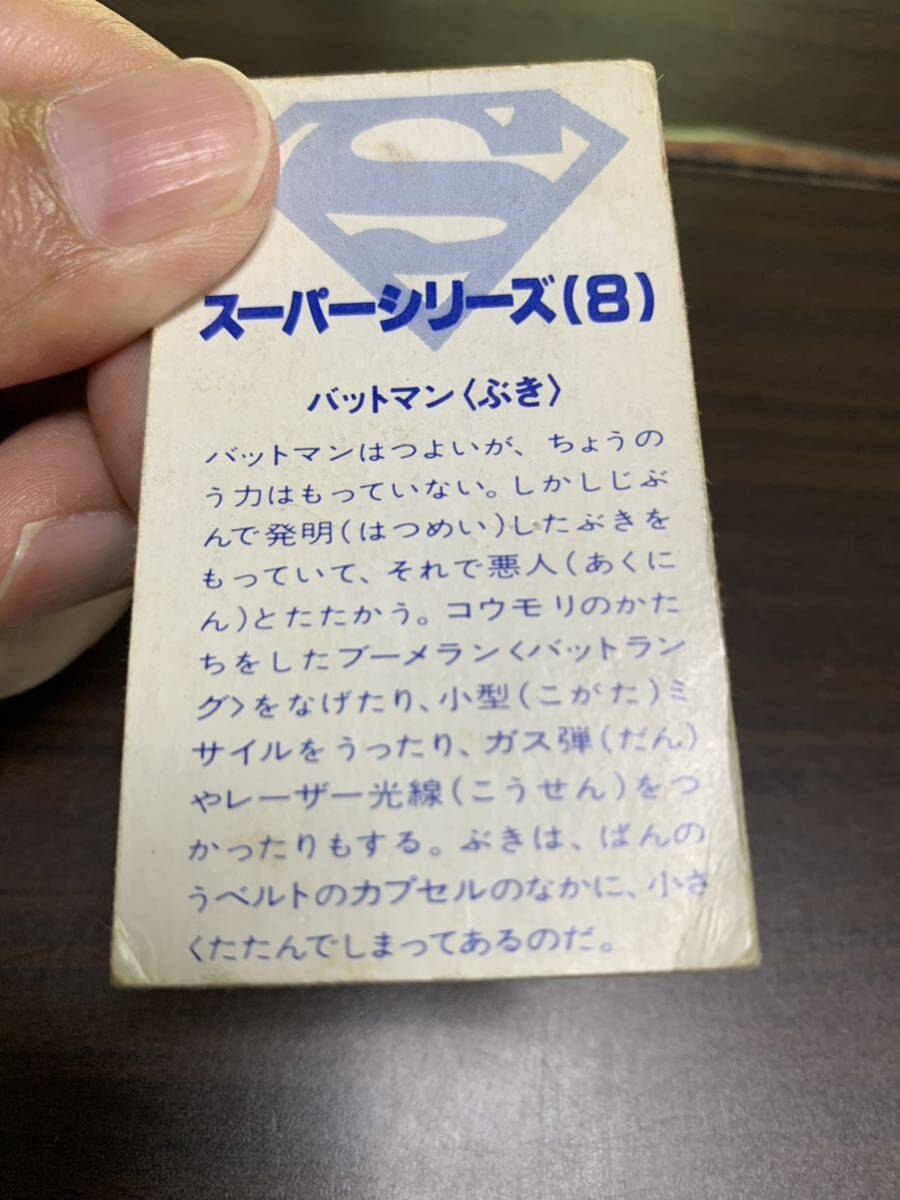 S
スーパーシリーズ(8)
バットマン〈ぶき〉
バットマンはつよいが、ちょうの
う力はもっていない。しかしじぶ
んで発明(はつめい)したぶきを
もっていて、それで悪人(あくに
ん)とたたかう。コウモリのかた
ちをしたブーメラン〈バットラン
グ〉をなげたり、小型(こがた)ミ
サイルをうったり、ガス弾(だん)
やレーザー光線(こうせん)をつ
かったりもする。ぶきは、ばんの
うベルトのカプセルのなかに、小さ
くたたんでしまってあるのだ。